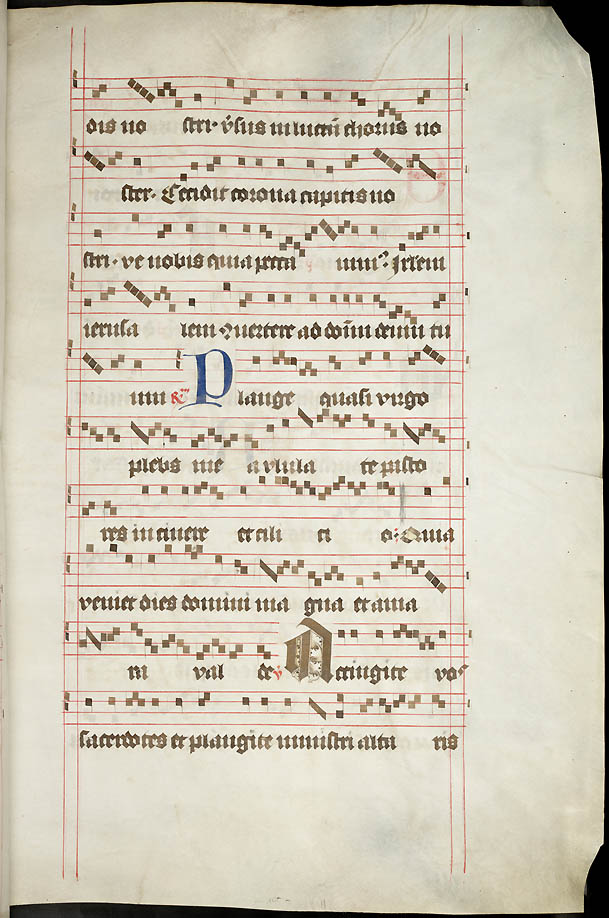 dis no ster · v̄sus in luctū chorus no
ster · Cecidit corona capitis no
stri · ve nobis quia pecca uim᷒ · Jrlem
ierusa lem Conuertere ad dn̄m deum tu
um ℞ Plange quasi virgo
plebs me a vlula te pasto
res in cinere et cili ci o · Quia
veniet dies domini ma gna et ama
ra val de ℣ Accingite vos
sacerdotes et plangite ministri alta ris